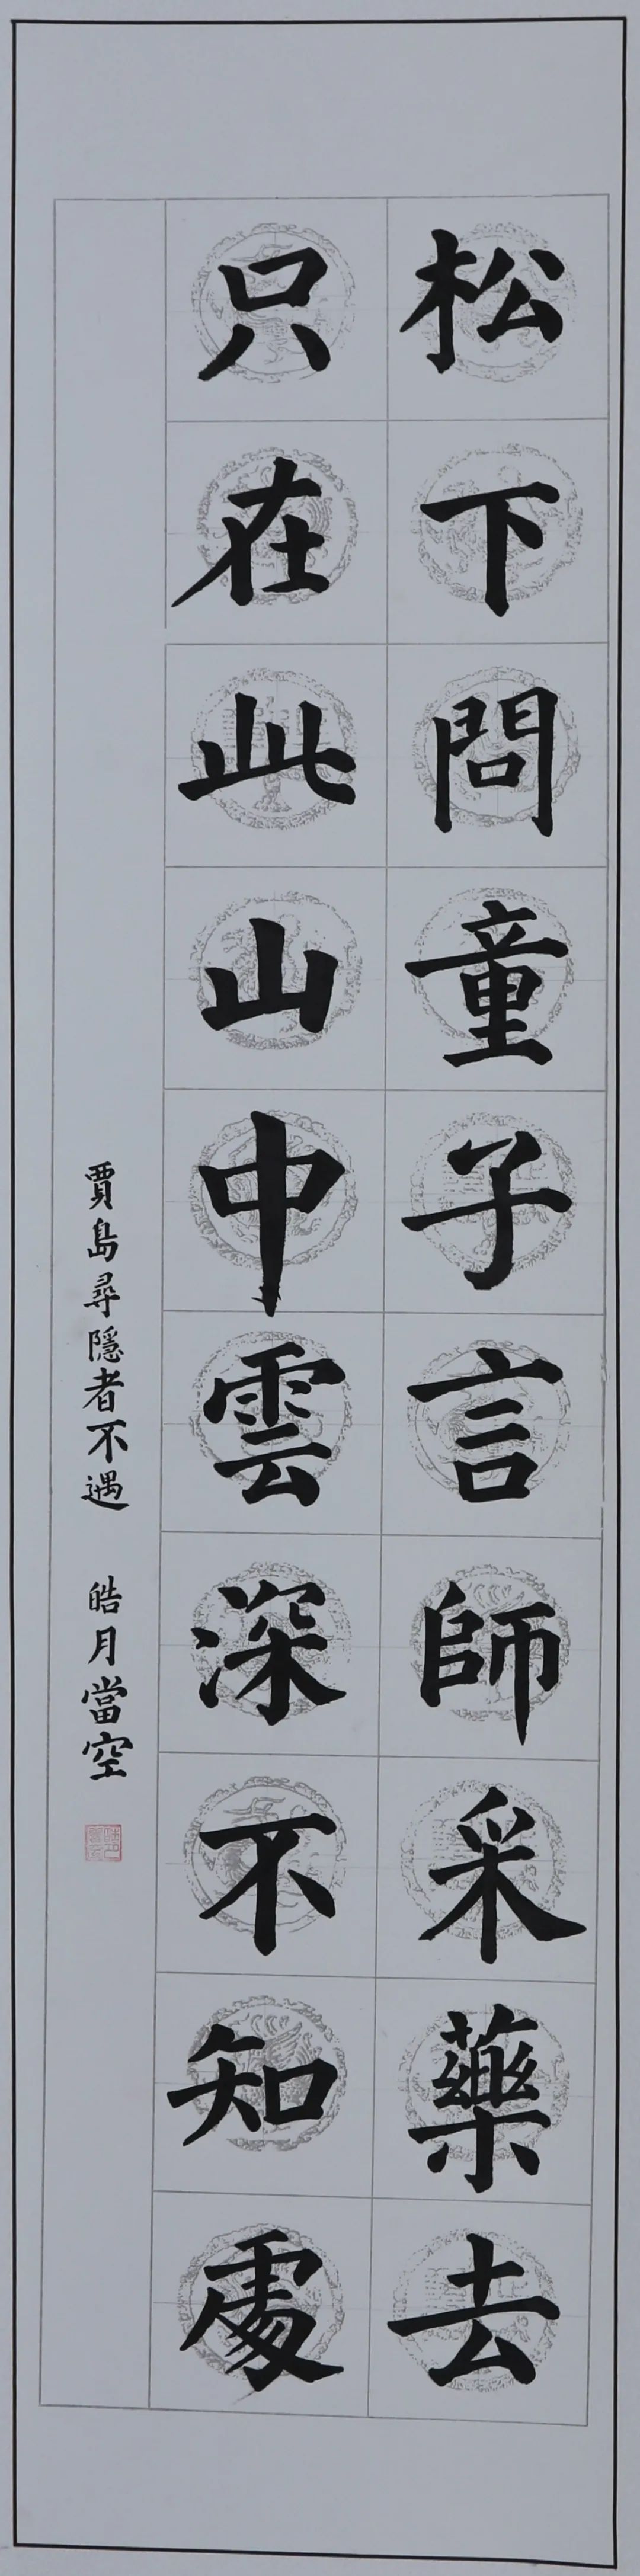 松下問童子言師采藥去
只在此山中雲深不知處
賈島尋隱者不遇 皓月當空